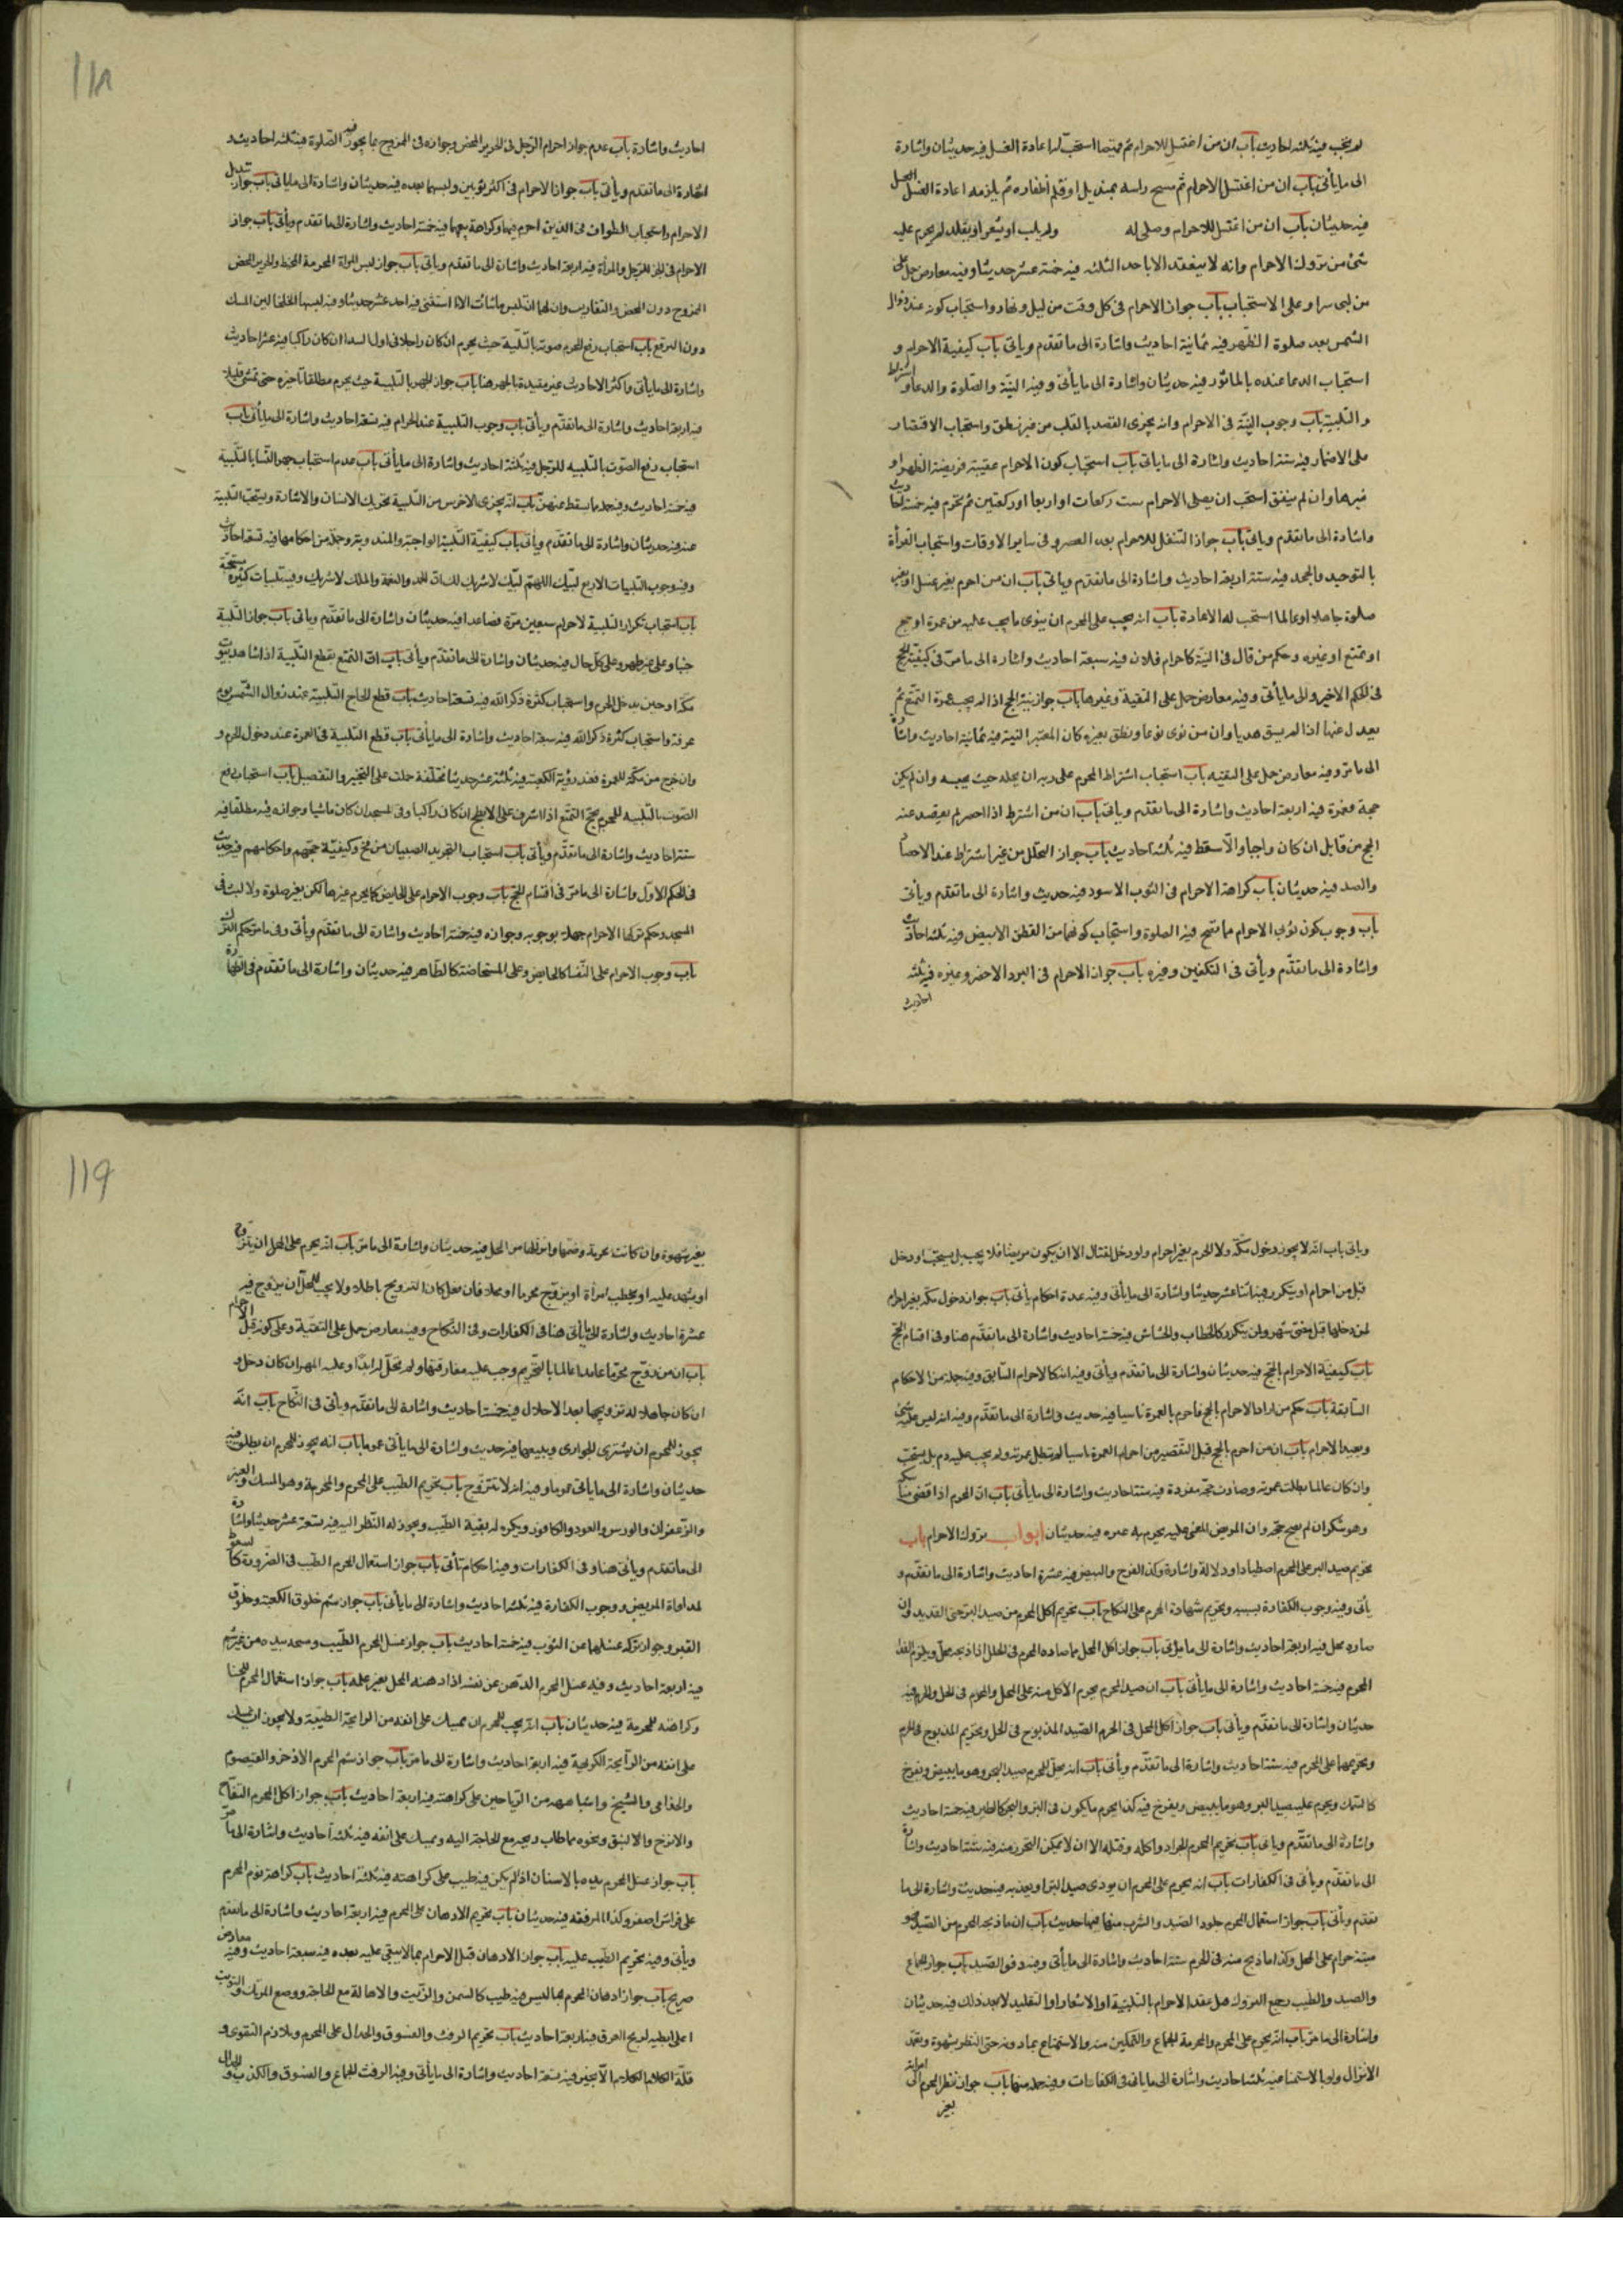 لم يجب فيه ثلثه احاديث باب ان من اغتسل للاحرام ثم استحب له اعادة الغسل فيه حديثان واشارة
الى ما يأتى باب ان من اغتسل للاحرام ثم مسح راسه بمنديل او قلم اظفاره لم يلزمه اعادة الغسل
فيه حديثان باب ان من اغتسل للاحرام وصلى له ولم يلب او يشعر او يقلد لم يحرم عليه
شئ من تروك الاحرام وانه لا ينعقد الا باحد الثلثه فيه خمسة عشر حديثا وفيه معارض حمل على
من لبى سرا وعلى الاستحباب باب جواز الاحرام فى كل وقت من ليل ونهار واستحباب كونه عند زوال
الشمس بعد صلوة الظهر فيه ثمانية احاديث واشارة الى ما تقدم وياتى باب كيفية الاحرام و
استحباب الدعا عنده بالماثور فيه حديثان واشارة الى ما يأتى وفيه النية والصلوة والدعا واشتراط
والتلبية باب وجوب النية فى الاحرام وانه يجزى القصد بالقلب من غير نطق واستحباب الاقتصار
على الاضمار فيه ستة احاديث واشارة الى ما ياتى باب استحباب كون الاحرام عقيب فريضة الظهر او
غيرها وان لم يتفق استحب ان يصلى الاحرام ست ركعات او اربعا او ركعتين ثم يحرم فيه خمسة احاديث
واشارة الى ما تقدم وياتى باب جواز التنفل للاحرام بعد العصر وفى ساير الاوقات واستحباب القرأة
بالتوحيد والجحد فيه ستة اربعة احاديث واشارة الى ما تقدم وياتى باب ان من احرم بغير غسل او بغير
صلوة جاهلا او عالما استحب له الاعادة باب انه يجب على المحرم ان ينوى ما يجب عليه من عمرة او حج
او تمتع او غيره وحكم من قال فى النية كاحرام فلان فيه سبعة احاديث واشارة الى ما مر فى كيفية الحج
فى الحكم الاخير والى ما يأتى وفيه معارض حمل على التقية وغيرها باب جواز نية الحج اذا لم يجب عمرة التمتع ثم
يعدل عنها اذا لم يسق هديا وان من نوى نوعا ونطق بغيره كان المعتبر النية فيه ثمانية احاديث واشارة
الى ما مر وفيه معارض حمل على التقيه باب استحباب اشتراط المحرم على ربه ان يحله حيث حبسه وان لم يكن
حجة فعمرة فيه اربعة احاديث واشارة الى ما تقدم وياتى باب ان من اشترط اذا احصر لم يسقط عنه
الحج من قابل ان كان واجبا والا سقط فيه ثلثه احاديث باب جواز التحلل من غير اشتراط عند الاحصار
والصد فيه حديثان باب كراهة الاحرام فى الثوب الاسود فيه حديث واشارة الى ما تقدم ويأتى
باب وجوب كون ثوبى الاحرام مما تصح فيه الصلوة واستحباب كونهما من القطن الابيض فيه ثلثه احاديث
واشارة الى ما تقدم ويأتى فى التكفين وغيره باب جواز الاحرام فى البرد الاخضر وغيره فيه ثلثه
احاديث
١١٨
احاديث واشارة باب عدم جواز احرام الرجل فى الحرير المحض وجوازه فى الممزوج بما يجوز فيه الصلوة فيه ثلثه احاديث و
اشارة الى ما تقدم ويأتى باب جواز الاحرام فى اكثر ثوبين ولبسها بعده فيه حديثان واشارة الى ما ياتى باب جواز تبديل
الاحرام واستحباب الطواف فى الذين احرم فيهما وكراهة بيعهما فيه خمسة احاديث واشارة الى ما تقدم ويأتى باب جواز
الاحرام فى الخز للرجل والمرأة فيه اربعة احاديث واشارة الى ما تقدم وياتى باب جواز لبس المرأة المحرمة المخيط والحرير المحض
الممزوج دون المحض والقفازين وان لها ان تلبس ما شائت الا ما استثنى فيه احد عشر حديثا وفيه لبسها الخلخالين المسك
دون البرقع باب استحباب رفع المحرم صوته بالتلبية حيث يحرم ان كان راجلا وفى اول البيدا ان كان راكبا فيه عشرة احاديث
واشارة الى ما يأتى واكثر الاحاديث غير مقيدة بالجهر هنا باب جواز الجهر بالتلبية حيث يحرم مطلقا تاخيره حتى تمشى قليلا
فيه اربعة احاديث واشارة الى ما تقدم ويأتى باب وجوب التلبية عند الاحرام فيه تسعة احاديث واشارة الى ما يأتى باب
استحباب رفع الصوت بالتلبيه للرجل فيه ثلثة احاديث واشارة الى ما يأتى باب عدم استحباب جهر النسا بالتلبية
فيه خمسة احاديث وفيه جملة ما يسقط عنهن باب انه يجزى الاخرس من التلبية تحريك اللسان والاشارة ويستحب التلبية
عنه فيه حديثان واشارة الى ما تقدم ويأتى باب كيفية التلبية الواجبة والمندوبة وجملة من احكامها فيه تسعة احاديث
وفيه وجوب التلبيات الاربع لبيك اللهم لبيك لا شريك لك ان الحمد والنعمة والملك لا شريك وفيه تلبيات كثيرة مستحبة
باب استحباب تكرار التلبية لاحرام سبعين مرة فصاعدا فيه حديثان واشارة الى ما تقدم وياتى باب جواز التلبية
جنبا وعلى غير طهر وعلى كل حال فيه حديثان واشارة الى ما تقدم ويأتى باب ان المتمتع يقطع التلبية اذا شاهد بيوت
مكة او حين يدخل الحرم واستحباب كثرة ذكر الله فيه تسعة احاديث باب قطع الحاج التلبية عند زوال الشمس يوم
عرفة واستحباب كثرة ذكر الله فيه سبعة احاديث واشارة الى ما يأتى باب قطع التلبية فى العمرة عند دخول الحرم و
وان خرج من مكة للعمرة فعند رؤية الكعبة فيه ثلثة عشر حديثا مختلفة حملت على التخيير والتفصيل باب استحباب رفع
الصوت بالتلبيه للمحرم بحج التمتع اذا اشرف على الابطح ان كان راكبا وفى المسجد ان كان ماشيا وجوازه فيه مطلقا فيه
ستة احاديث واشارة الى ما تقدم ويأتى باب استحباب التجريد الصبيان من فخ وكيفية حجهم واحكامهم فيه حديث
فى الحكم الاول واشارة الى ما مر فى اقسام الحج باب وجوب الاحرام على الحايض كما يحرم غيرها لكن بغير صلوة ولا لبث فى
المسجد وحكم تركها الاحرام جهلا بوجوبه وجوازه فيه خمسة احاديث واشارة الى ما تقدم ويأتى وفى ما مر حكم الترك
باب وجوب الاحرام على النفسا كالحايض وعلى المستحاضة كالطاهر فيه حديثان واشارة الى ما تقدم فى الطهارة
وياتى باب انه لا يجوز دخول مكة ولا الحرم بغير احرام ولو دخل لقتال الا ان يكون مريضا فلا يجب بل يستحب او دخل
قبل من احرام او يتكرر فيه اثنا عشر حديثا واشارة الى ما يأتى وفيه عدة احكام يأتى باب جواز دخول مكة بغير احرام
لمن دخلها قبل مضى شهر ولمن يتكرر كالحطاب والحشاش فيه خمسة احاديث واشارة الى ما تقدم هنا وفى اقسام الحج
باب كيفية الاحرام بالحج فيه حديثان واشارة الى ما تقدم ويأتى وفيه انه كالاحرام السابق وفيه جملة من الاحكام
السابقة باب حكم من اراد الاحرام بالحج فاحرم بالعمرة ناسيا فيه حديث واشارة الى ما تقدم وفيه انه ليس عليه شئ
ويعيد الاحرام باب ان من احرم بالحج قبل التقصير من احرام العمرة ناسيا لم تبطل عمرته ولم يجب عليه دم بل يستحب
وان كان عالما بطلت عمرته وصارت حجة مفردة فيه ستة احاديث واشارة الى ما يأتى باب ان المحرم اذا قضى مناسكه
وهو سكران لم يصح حجه وان المريض المغمى عليه يحرم به غيره فيه حديثان ابواب تروك الاحرام باب
تحريم صيد البر على المحرم اصطيادا ودلالة واشارة وكذا الفرخ والبيض فيه عشرة احاديث واشارة الى ما تقدم و
يأتى وفيه وجوب الكفارة بسببه وتحريم شهادة المحرم على النكاح باب تحريم اكل المحرم من صيد البر حتى القديد وان
صاده محل فيه اربعة احاديث واشارة الى ما يأتى باب جواز اكل المحل ما صاده المحرم فى الحل اذا ذبحه محل ويلزم الفدا
المحرم فيه خمسة احاديث واشارة الى ما يأتى باب ان صيد الحرم يحرم الاكل منه على المحل والمحرم فى الحل والحرم فيه
حديثان واشارة الى ما تقدم ويأتى باب جواز اكل المحل فى الحرم الصيد المذبوح فى الحل وتحريم المذبوح فى الحرم
وتحريمهما على المحرم فيه ستة احاديث واشارة الى ما تقدم ويأتى باب انه يحل للمحرم صيد البحر وهو ما يبيض ويفرخ
كالسمك ويحرم عليه صيد البر وهو ما يبيض ويفرخ فيه كذا يحرم ما يكون فى البر والبحر كالطير فيه خمسة احاديث
واشارة الى ما تقدم وياتى باب تحريم المحرم الجراد واكله وقتله الا ان لا يمكن التحرز منه فيه ستة احاديث واشارة
الى ما تقدم ويأتى فى الكفارات باب انه يحرم على المحرم ان يودى صيد البر او يعذبه فيه حديث واشارة الى ما
تقدم ويأتى باب جواز استعمال المحرم جلود الصيد والشرب منها فيها حديث باب ان ما ذبحه المحرم من الصيد فهو
ميتة حرام على المحل وكذا ما ذبح منه فى الحرم ستة احاديث واشارة الى ما يأتى وفيه دفن الصيد باب جواز الجماع
والصيد والطيب وجميع التروك قبل عقد الاحرام بالتلبية او الاشعار او التقليد لا بعد ذلك فيه حديثان
واشارة الى ما مر باب انه يحرم على المحرم والمحرمة الجماع والتمكين منه والاستمتاع بما دونه حتى النظر بشهوة وتعمد
الانزال ولو بالاستمنا فيه ثلثه احاديث واشارة الى ما ياتى فى الكفارات وفيه جملة منها باب جواز نظر المحرم الى امراته
بغير
١١٩
بغير شهوة وان كانت محرمة وضمها وانزالها من المحل فيه حديثان واشارة الى ما مر باب انه يحرم على المحل ان يتزوج
او يشهد عليه او يخطب امرأة او يزوج محرما او محلا فان فعل كان التزويج باطلا ولا يجب للمحل ان يزوج فيه
عشرة احاديث واشارة الى ما يأتى هنا فى الكفارات وفى النكاح وفيه معارض حمل على التقية وعلى كونه قبل الاحرام
باب ان من تزوج محرما عامدا عالما بالتحريم وجب عليه مفارقتها ولم تحل له ابدا وعليه المهر ان كان دخل و
ان كان جاهلا له تزويجها بعد الاحلال فيه خمسة احاديث واشارة الى ما تقدم ويأتى فى النكاح باب انه
يجوز للمحرم ان يشترى الجوارى ويبيعها فيه حديث واشارة الى ما يأتى عموما باب انه يجوز للمحرم ان يطلق فيه
حديثان واشارة الى ما ياتى عموما وفيه انه لا يتزوج باب تحريم الطيب على المحرم والمحرمة وهو المسك والعنبر
والزعفران والورس والعود والكافور ويكره له بقية الطيب ويجوز له النظر اليه فيه تسعة عشر حديثا واشارة
الى ما تقدم ويأتى هنا وفى الكفارات وفيه احكام تأتى باب جواز استعمال المحرم الطيب فى الضرورة كالسعوط
لمداواة المريض ووجوب الكفارة فيه ثلثه احاديث واشارة الى ما يأتى باب جواز شم خلوق الكعبة وخلوق
القبر وجواز ترك غسلها من الثوب فيه خمسة احاديث باب جواز غسل المحرم الطيب ومسحه بيده من غير شم
فيه اربعة احاديث وفيه غسل المحرم الدهن عن نفسه اذا دهنه المحل بغير علمه باب جواز استعمال المحرم الحنا
وكراهته للمحرمة فيه حديثان باب انه يجب للمحرم ان يمسك على انفه من الرايحة الطيبة ولا يجوز ان يمسك
على انفه من الرايحة الكريهة فيه اربعة احاديث واشارة الى ما مر باب جواز شم المحرم الاذخر والقيصوم
والخزامى والشيح واشباهه من الرياحين على كراهته فيه اربعة احاديث باب جواز اكل المحرم التفاح
والاترج والنبق ونحوه مما طاب ريحه مع الحاجة اليه ويمسك على انفه فيه ثلثه احاديث واشارة الى ما مر
باب جواز غسل المحرم يده بالاشنان اذا لم يكن فيه طيب على كراهته فيه ثلثه احاديث باب كراهة نوم المحرم
على فراش اصفر وكذا المرفقه فيه حديثان باب تحريم الادهان على المحرم فيه اربعة احاديث واشارة الى ما تقدم
ويأتى وفيه تحريم الطيب عليه باب جواز الادهان قبل الاحرام بما لا يبقى عليه بعده فيه سبعة احاديث وفيه معارض
صريح باب جواز ادهان المحرم بما ليس فيه طيب كالسمن والزيت والاهالة مع الحاجة ووضع المرتك والتوت
اعلى ابطيه لريح العرق فيه اربعة احاديث باب تحريم الرفث والفسوق والجدال على المحرم وملازم التقوى و
قلة الكلام الا بخير فيه تسعة احاديث واشارة الى ما يأتى وفيه الرفث الجماع والفسوق والكذب والجدال